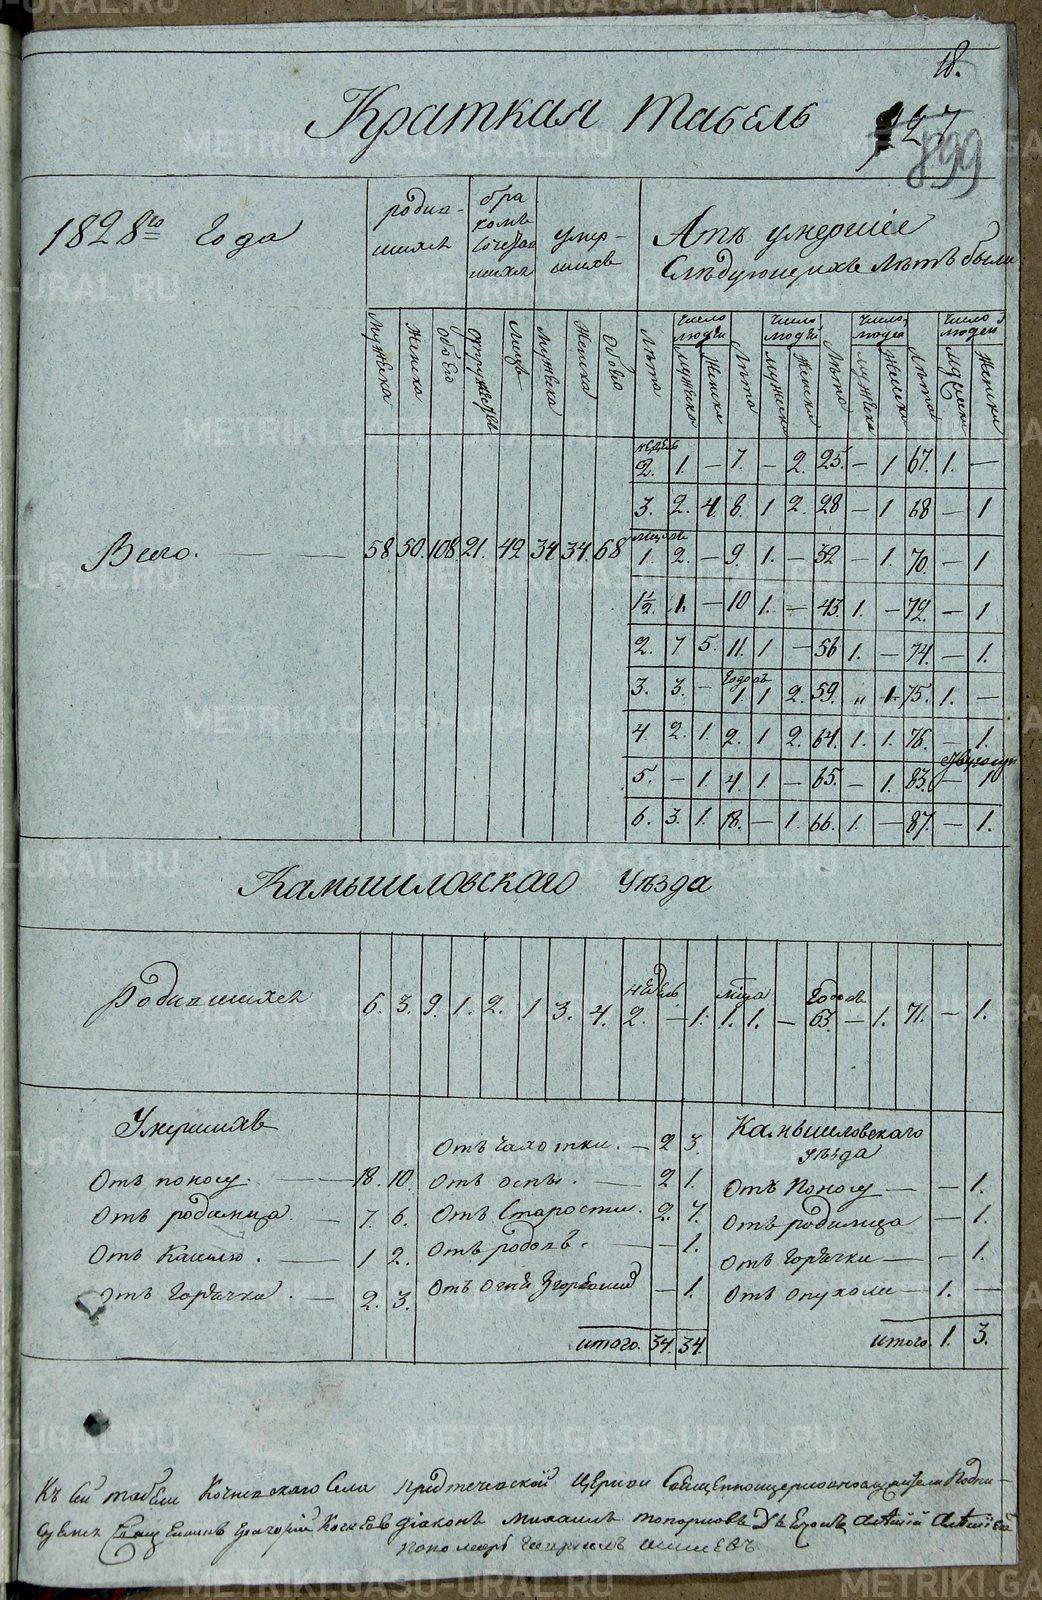 18.
Краткая табель
127
899
1828го Года
родив-
шихся
бра
комъ
сочетав
шихся
умер-
шихъ
Лѣтъ умершіе
Слѣдующихъ Лѣтъ были
Мужеска Женска Обоего Супружествъ Лицъ Мужеска Женска Обоего
Лѣта Число людей Мужеска Женска Лѣта Число людей Мужеска Женска Лѣта Число людей Мужеска Женска Лѣта Число людей Женска
недель
2. 1. — 7. — 2. 25. — 1 67. 1. —
3. 2. 4. 8. 1 2. 28 — 1 68 — 1
Всего. — — 58. 50. 108. 21. 42 34 34. 68
1. 2. — 9. 1. — 32 — 1. 70. — 1
1½. 1. — 10 1. — 43. 1. — 72. — 1
2. 7 5. 11. 1 — 56 1. — 74. — 1.
Годовъ
3. 3. — 1. 1 2. 59. „ 1. 75. 1. —
4. 2. 1. 2. 1 2. 64. 1. 1. 76. — 1.
5. — 1. 4. 1. — 65. — 1. 83. — 1
6. 3. 1. 18. — 1. 66. 1. — 87. — 1.
Камышловскаго уѣзда
недель мца Годовъ
Родившихся 6. 3. 9. 1. 2. 1 3. 4. 2. — 1. 1. 1. — 63. — 1. 71. — 1.
Умершихъ
Отъ поносу. — 18. 10.
Отъ родимца. — 7. 6.
Отъ Кашлю. — 1 2.
Отъ Горячки. — 2. 3.
Отъ чахотки. — 2 3.
Отъ оспы. — 2 1.
Отъ Старости. 2. 7.
Отъ родовъ. — — 1.
Отъ огня — 1.
итого. 34. 34.
Камышловскаго
уѣзда
Отъ Поносу — — 1.
Отъ родимца — 1.
Отъ Горячки — — 1.
Отъ опухоли — 1. —
итого. 1. 3.
Къ сей табели Кочневскаго Села Предтечевской Церкви Священноцерковнослужители Подпи-
суемся Священникъ Григорій діаконъ Михаилъ Топорковъ
Пономарь
METRIKI.GASO-URAL.RU